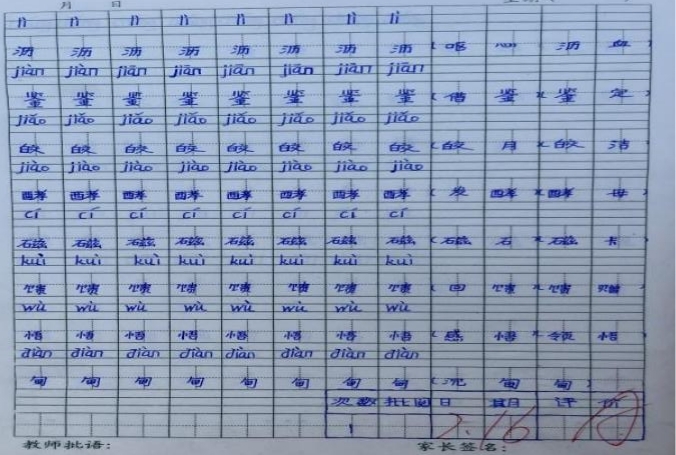 月 日
lì lì lì lì lì lì lì lì
沥 沥 沥 沥 沥 沥 沥 沥 （呕 心 沥 血）
jiàn jiàn jiàn jiàn jiàn jiàn jiàn jiàn
鉴 鉴 鉴 鉴 鉴 鉴 鉴 鉴 （借 鉴）（鉴 定）
jiǎo jiǎo jiǎo jiǎo jiǎo jiǎo jiǎo jiǎo
皎 皎 皎 皎 皎 皎 皎 皎 （皎 月）（皎 洁）
jiào jiào jiào jiào jiào jiào jiào jiào
酵 酵 酵 酵 酵 酵 酵 酵 （发 酵）（酵 母）
cí cí cí cí cí cí cí cí
磁 磁 磁 磁 磁 磁 磁 磁 （磁 石）（磁 卡）
kuì kuì kuì kuì kuì kuì kuì kuì
馈 馈 馈 馈 馈 馈 馈 馈 （回 馈）（馈 赠）
wù wù wù wù wù wù wù wù
悟 悟 悟 悟 悟 悟 悟 悟 （感 悟）（领 悟）
diàn diàn diàn diàn diàn diàn diàn diàn
甸 甸 甸 甸 甸 甸 甸 甸 （沉 甸 甸）
次数 批阅日期 评价
1 2.16
教师批语： 家长签名：